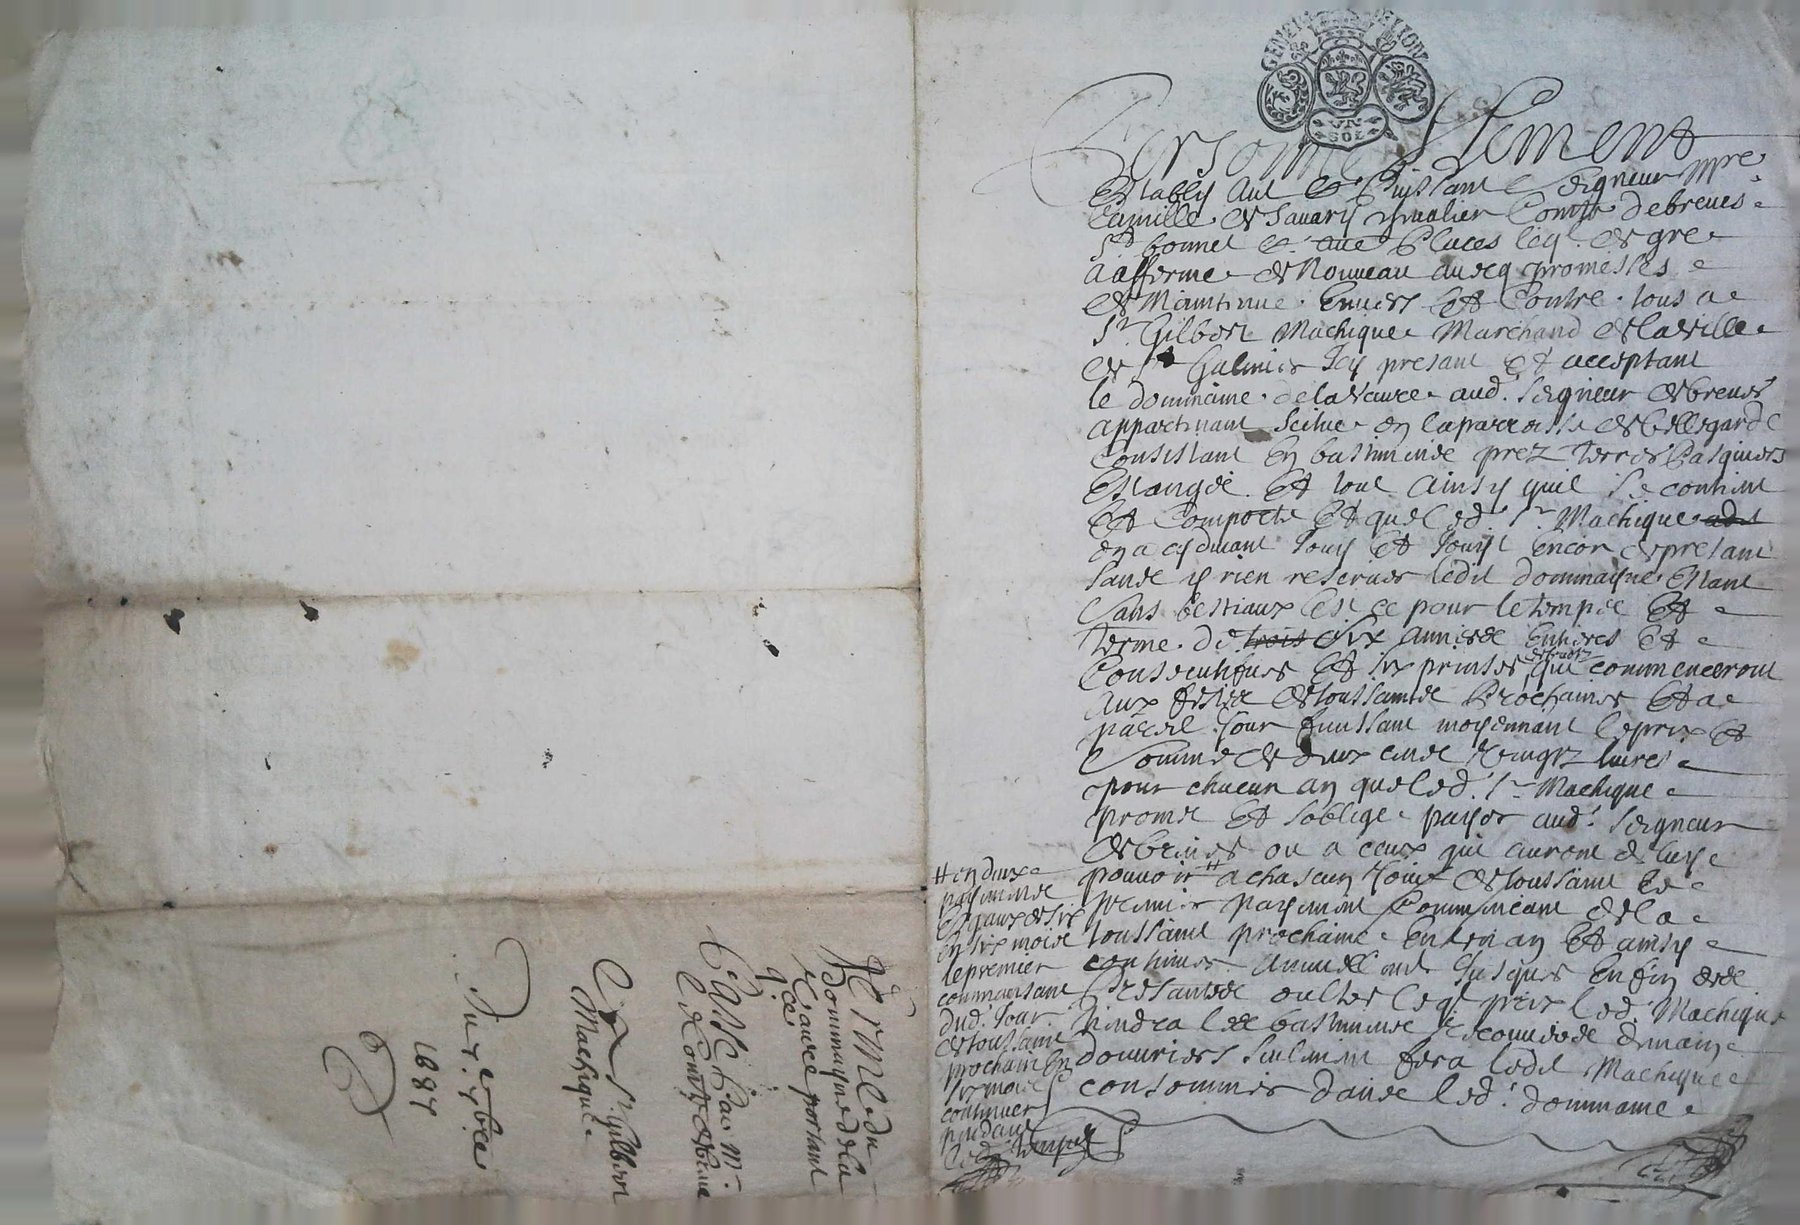 UN
SOL
Personnellement
Estably aut et Puissant Seigneur Mre
Camille de Savary chevalier Comte de breves
St bonnet et aue Places leql de gre
a afferme de Nouveau avecq promesses
de Maintenue Envers Et Contre tous a
Sr Gilbert Machique Marchand de la ville
de St Galmier Icy presant Et acceptant
le dommaine de la Vaure aud. Seigneur de breves
appartenant Scitue en la parroisse de bellegarde
Consistant En bastiments prez Terres Pasquiers
Estangs Et tout Ainsy quil se contient
Et Comporte Et que led. Sr Machique
en a cy devant Jouy Et Jouyt Encor de presant
sans y rien reserver ledit dommayne Estant
sans bestiaux Est ce pour le temps Et
Terme de trois six annees Entieres Et
Consecutifves Et six prinses qui commenceront
Aux festes de toussaints Prochaines Et a
pareil Jour finissant moyennant le prix Et
Somme de deux cents vingt livres
pour chacun an que led. Sr Machique
promet Et soblige payer aud. Seigneur
de breves ou a ceux qui auront de luy
pouvoir # a chascun Jour de toussaint Le
Premier payement Commencant de la
toussaint prochaine En un an Et ainsy
continuer Annuellement Jusques En fin des
Presantes oultre leql prix led. Machique
tiendra les bastiments recouverts de main
douvriers seulement fera ledit Machique
consommer dans led. dommaine
# en deux
payements
Egaux de six
En six mois
le premier
commencant
dud. Jour
de toussaint
prochain En
six mois
continuer
pendant
led. temps
Ferme du
Dommayne de la
Vaure portant
qce
Passe Par Mr
le Comte de breves
A Sr Gilbert
Machique
Du xe 7bre
1687